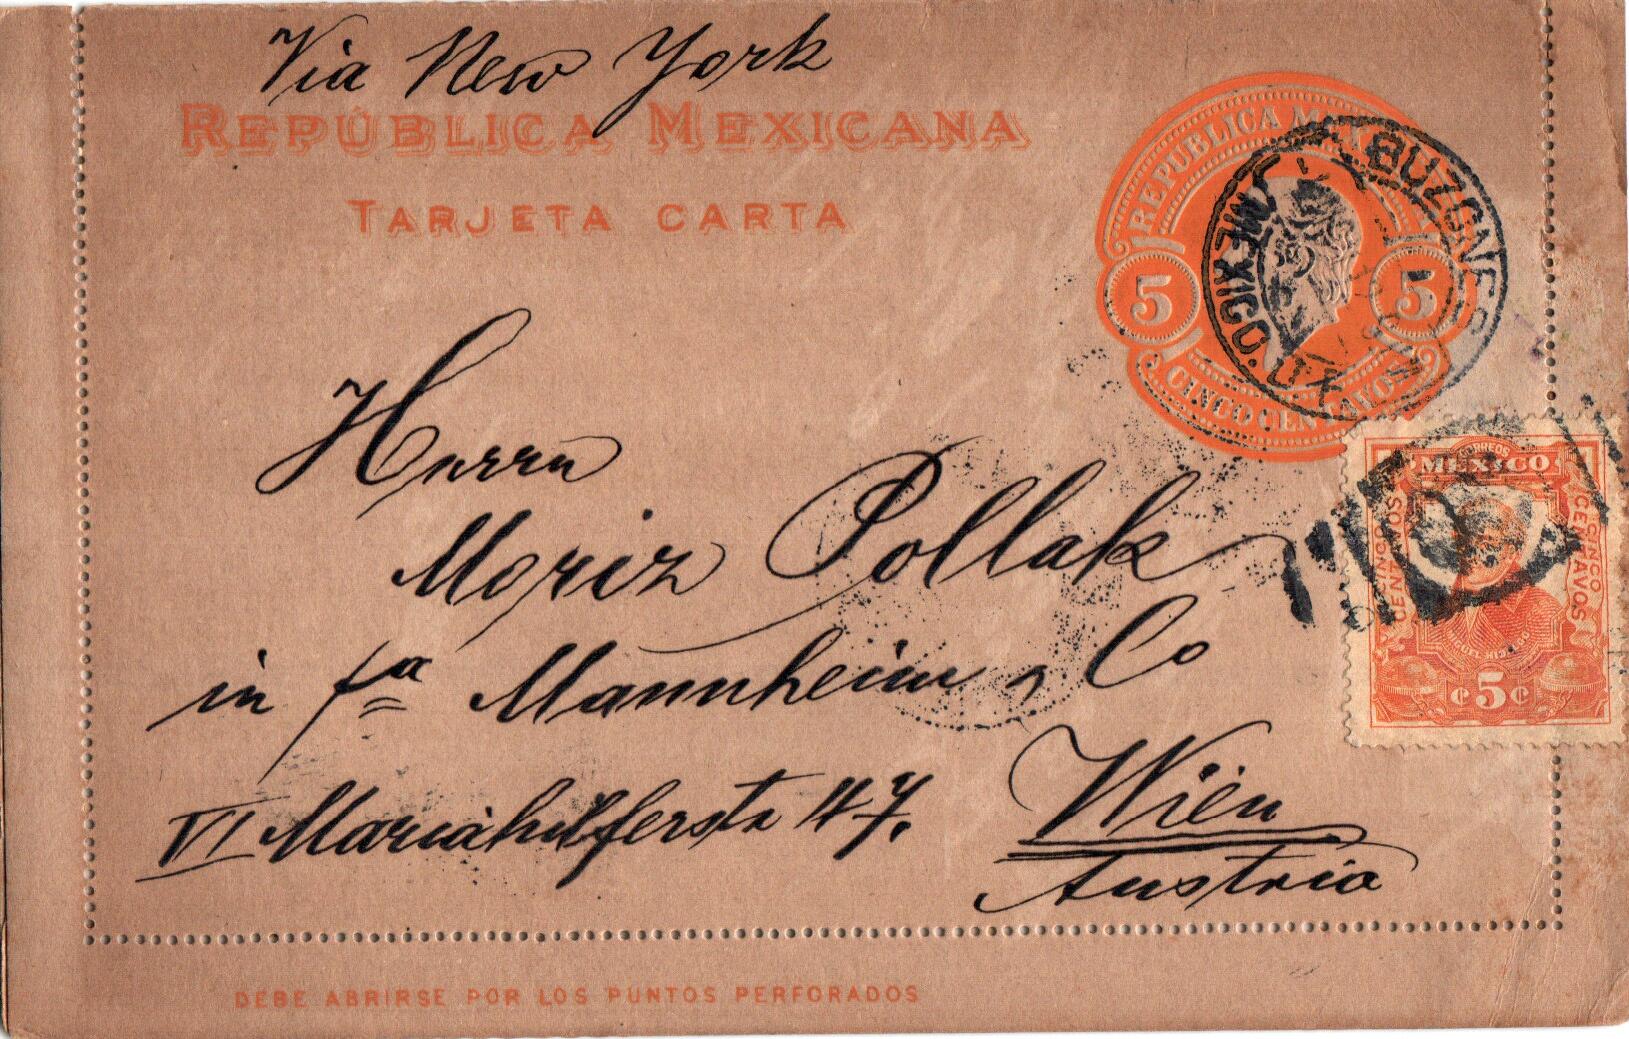 Via New York
REPÚBLICA MEXICANA
TARJETA CARTA
REPUBLICA MEXICANA
5 5
CINCO CENTAVOS
BUZONES
MEXICO.
Herrn
Moriz Pollak
in fa Mannheim & Co
VI Mariahilferstr 47.
Wien
Austria
CORREOS
MEXICO
CINCO CENTAVOS
CINCO CENTAVOS
MIGUEL HIDALGO
¢5¢
DEBE ABRIRSE POR LOS PUNTOS PERFORADOS